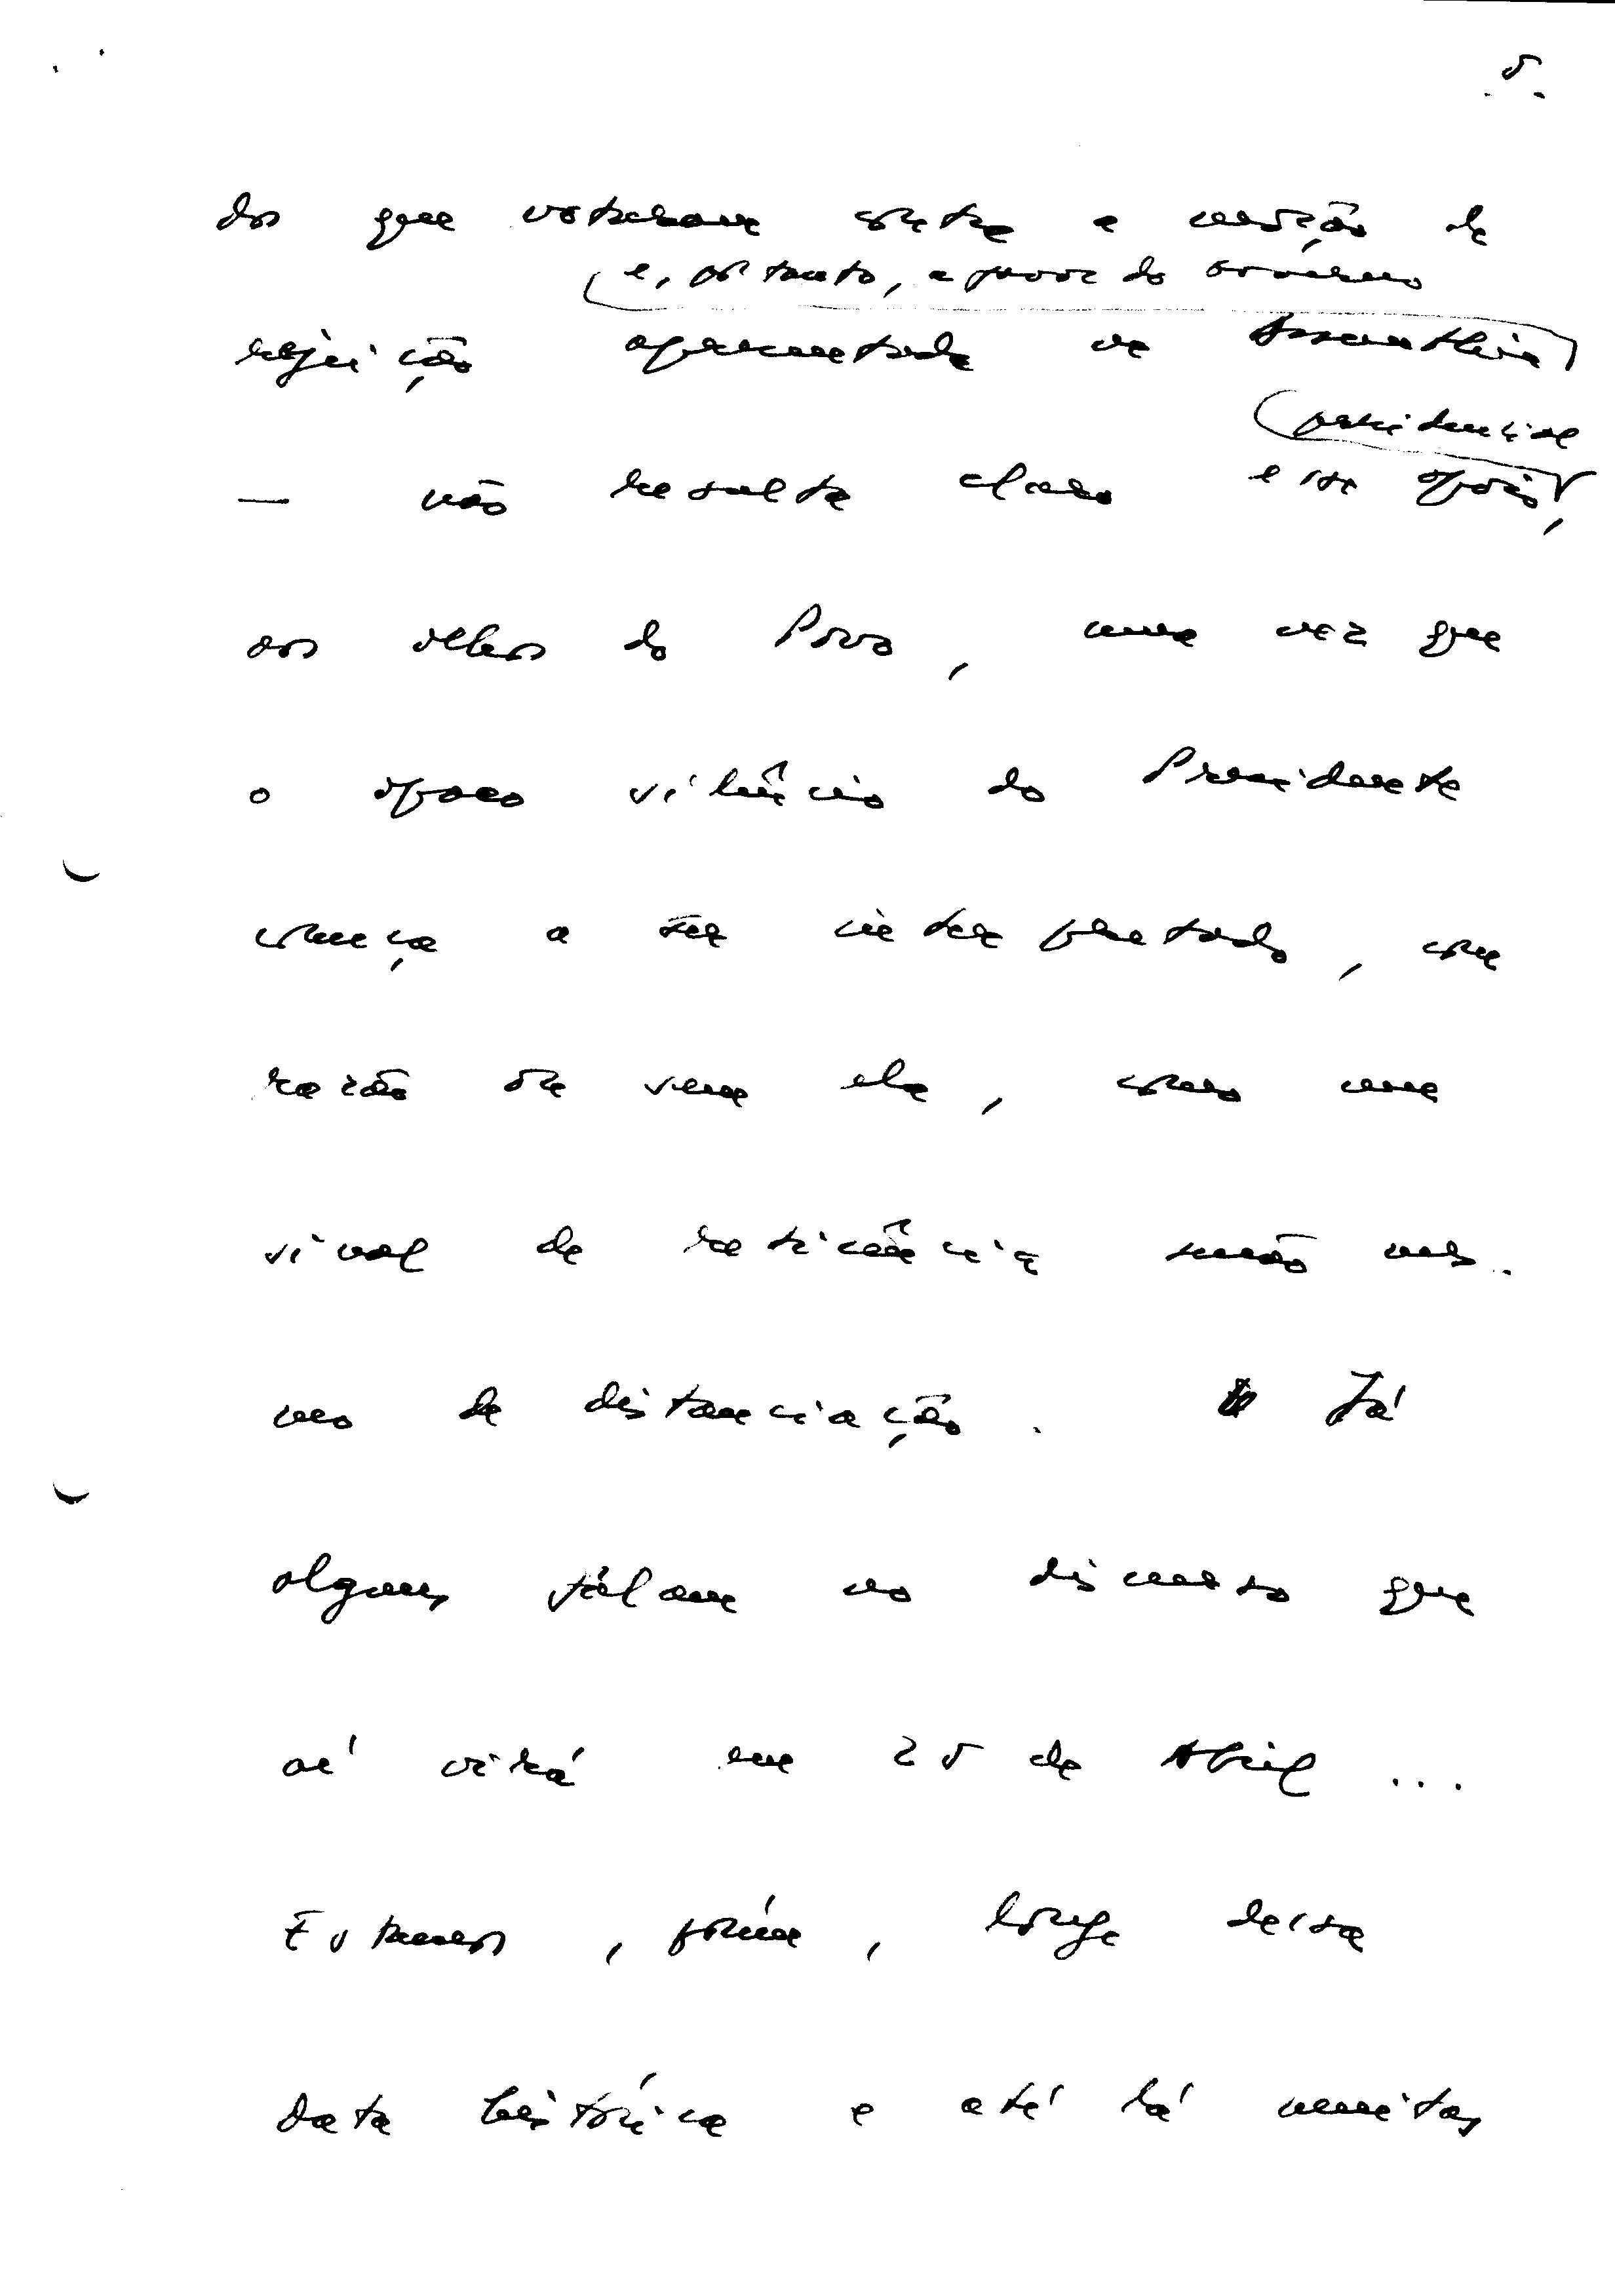 5.
dos que votaram contra a moção de
e, portanto, a favor do Governo
rejeição apresentada na Assembleia
presidencial
— não resulta claro essa opção,
aos olhos do Povo, uma vez que
o opaco silêncio do Presidente
começa a ser interpretado, com
razão ou sem ela, como um
sinal de reticência senão mes-
mo de distanciação. Já
alguns falam no discurso que
aí virá em 25 de Abril ...
Estamos, porém, longe dessa
data histórica e até lá muitas